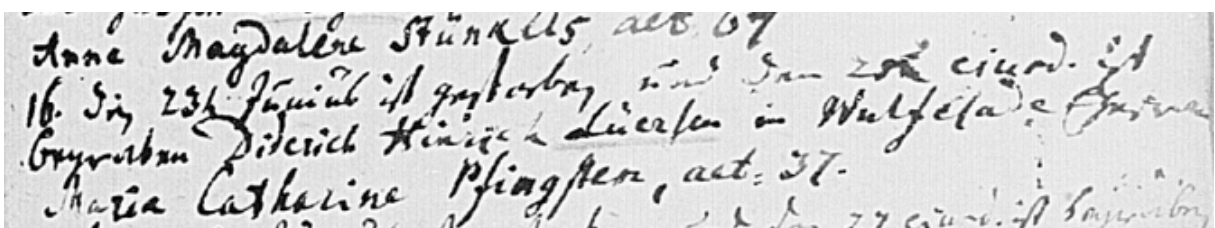 Anna Magdalena Stünkels, aet. 67
16. den 23t Junius ist gestorben und den 25t ejusd. ist
begraben Diderich Hinrich Lüersen in Wulfelade Ehefrau
Maria Catharina Pfingsten, aet: 37.
den 27 ejusd. ist begraben